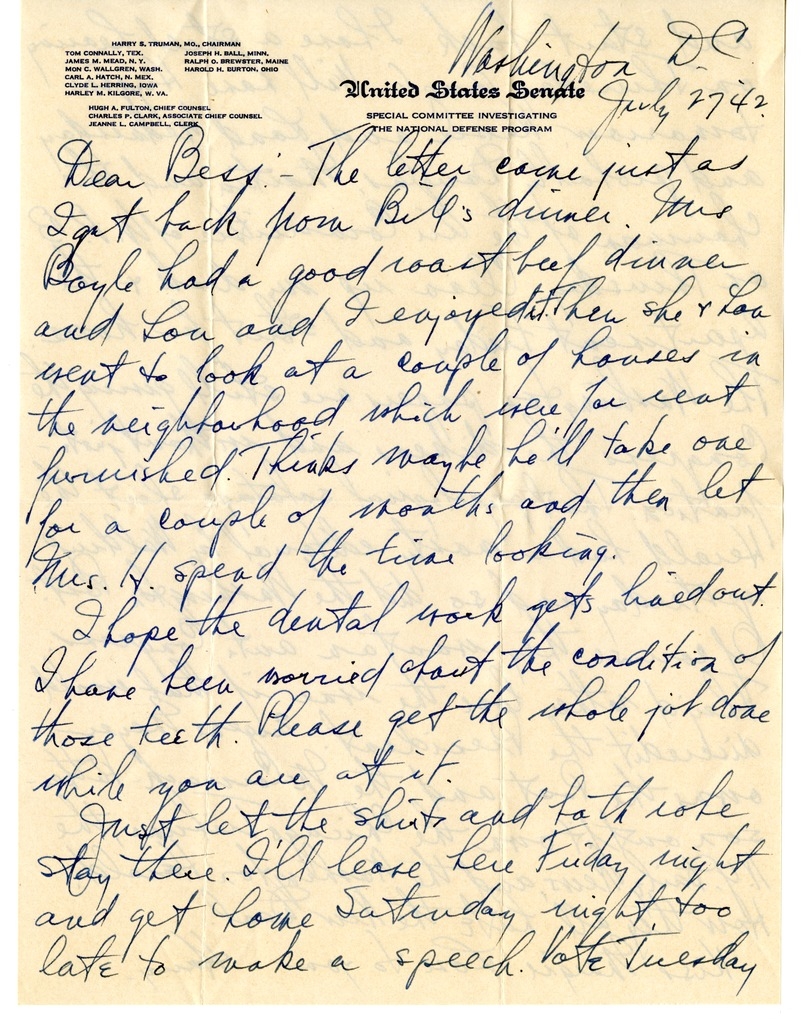 HARRY S. TRUMAN, MO., CHAIRMAN
TOM CONNALLY, TEX. JOSEPH H. BALL, MINN.
JAMES M. MEAD, N. Y. RALPH O. BREWSTER, MAINE
MON C. WALLGREN, WASH. HAROLD H. BURTON, OHIO
CARL A. HATCH, N. MEX.
CLYDE L. HERRING, IOWA
HARLEY M. KILGORE, W. VA.
HUGH A. FULTON, CHIEF COUNSEL
CHARLES P. CLARK, ASSOCIATE CHIEF COUNSEL
JEANNE L. CAMPBELL, CLERK
Washington D C
United States Senate
July 27 42
SPECIAL COMMITTEE INVESTIGATING
THE NATIONAL DEFENSE PROGRAM
Dear Bess:- The letter came just as
I got back from Bill's dinner. Mrs
Boyle had a good roast beef dinner
and Lou and I enjoyed it. Then she & Lou
went to look at a couple of houses in
the neighborhood which were for rent
furnished. Thinks maybe he'll take one
for a couple of months and then let
Mrs. H. spend the time looking.
I hope the dental work gets lined out.
I have been worried about the condition of
those teeth. Please get the whole job done
while you are at it.
Just let the shirts and bath robe
stay there. I'll leave here Friday night
and get home Saturday night too
late to make a speech. Vote Tuesday